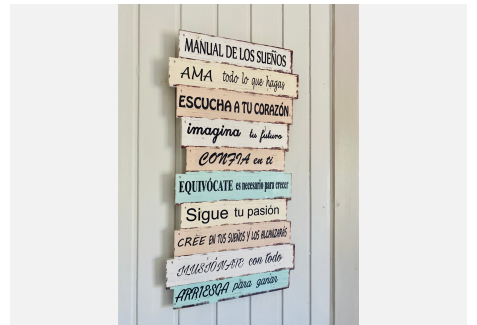 MANUAL DE LOS SUEÑOS
AMA todo lo que hagas
ESCUCHA A TU CORAZÓN
imagina tu futuro
CONFIA en ti
EQUIVÓCATE es necesario para crecer
Sigue tu pasión
CRÉE EN TUS SUEÑOS Y LOS ALCANZARÁS
ILUSIÓNATE con todo
ARRIESGA para ganar